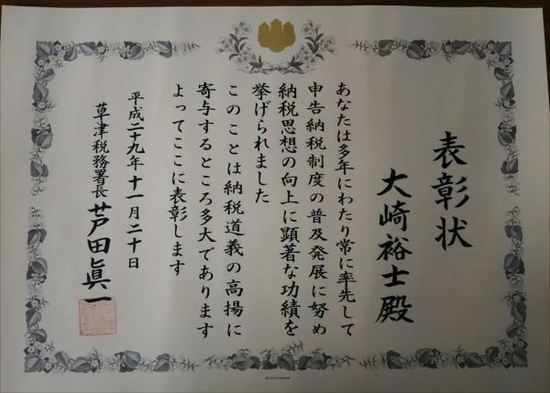 表彰状
大崎裕士殿
あなたは多年にわたり常に率先して
申告納税制度の普及発展に努め
納税思想の向上に顕著な功績を
挙げられました
このことは納税道義の高揚に
寄与するところ多大であります
よってここに表彰します
平成二十九年十一月二十日
草津税務署長 芦田眞一